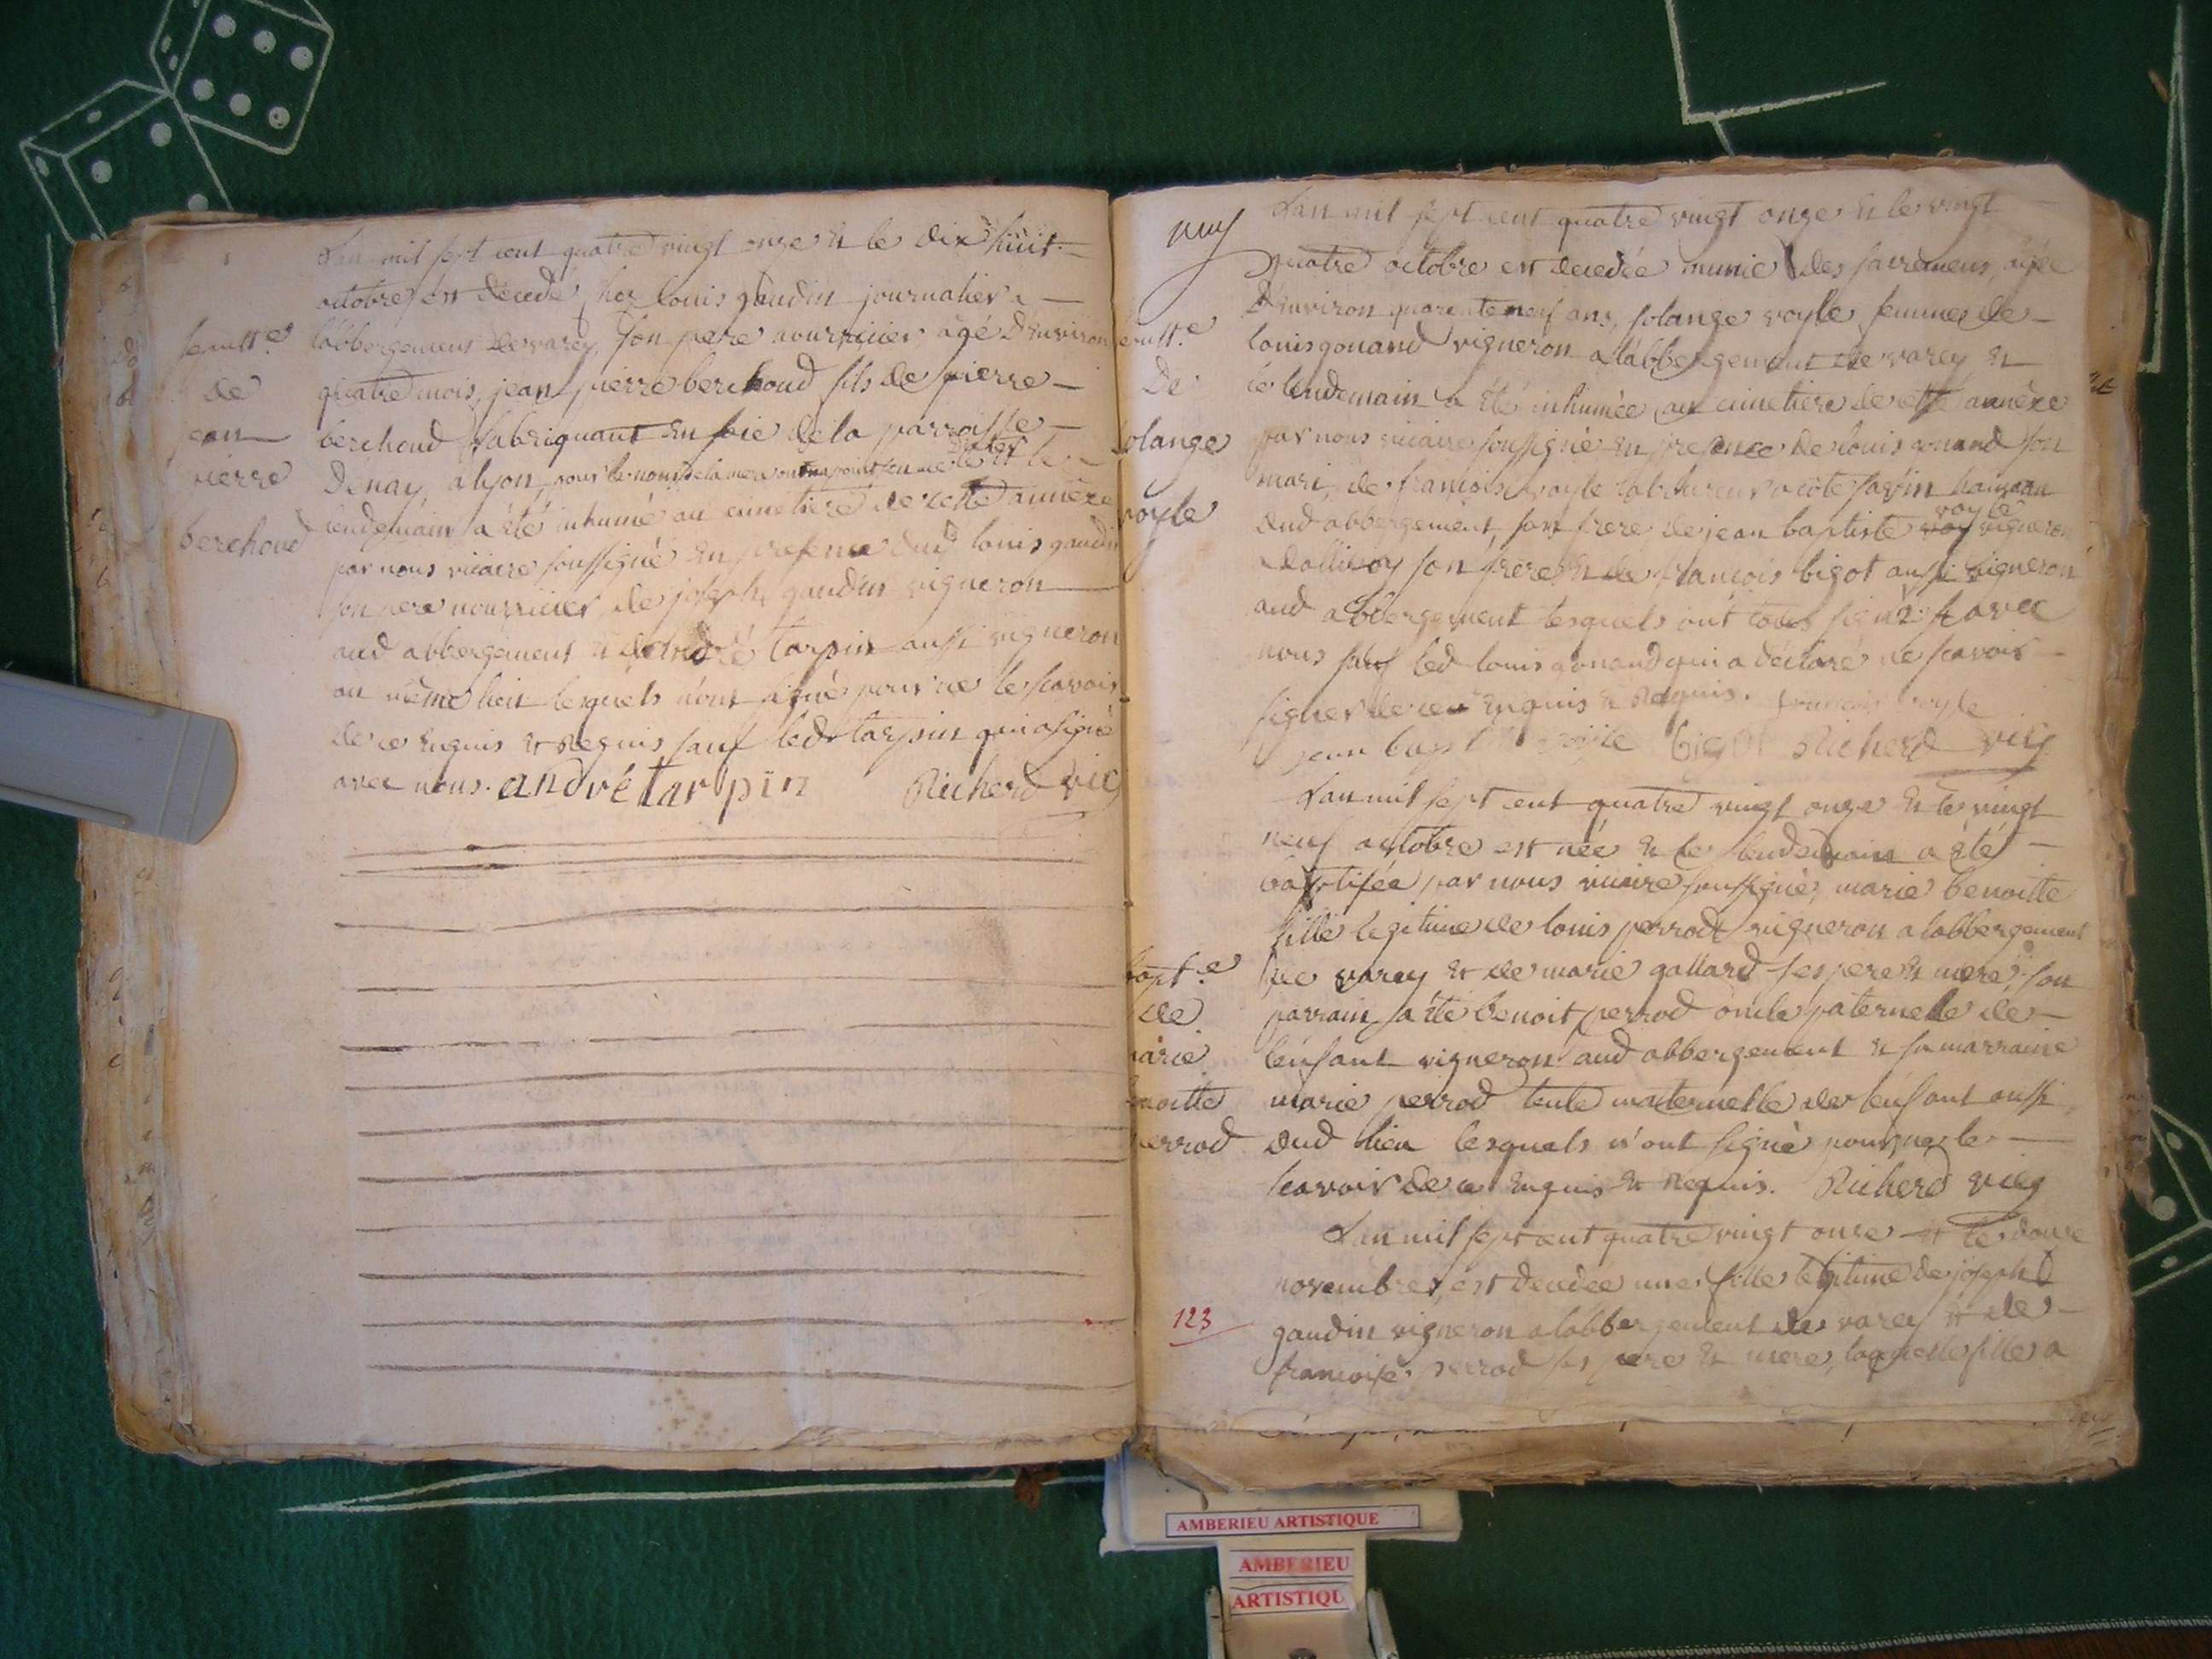 Lan mil sept cent quatre vingt onze et le dix huit
octobre est décedé chez louis gaudin journalier a
labbergement de varey, son pere nourricier agé d'environ
quatre mois, jean pierre berchoud fils de pierre
berchoud fabriquant en soie de la parroisse
Denay, a lyon, pour le nom de la mere on n'a point
et le
lendemain a été inhumé au cimetiere de cette annèxe
par nous vicaire soussigné en presence dud louis gaudin
son pere nourricier, de joseph gaudin vigneron
aud abbergement et de andré tarpin aussi vigneron
au même lieu lesquels n'ont signé pour ne le scavoir
de ce enquis et requis sauf led tarpin qui a signé
avec nous. andré tarpin Richerd vic
sepultre
de
jean
pierre
berchoud
Lan mil sept cent quatre vingt onze et le vingt
quatre octobre est decedée munie des sacremens, agée
d'environ quarente neuf ans, solange voyle femme de
louis gonand vigneron a labbergement de varey et
le lendemain a été inhumée au cimetiere de cette annèxe
par nous vicaire soussigné en presence de louis gonand son
mari, de francois voyle laboureur a cote savin hameau
dud abbergement, son frere, de jean baptiste voyle vigneron
son frere et de francois bigot aussi vigneron
aud abbergement lesquels ont tous signé avec
nous sauf led louis gonand qui a déclaré ne scavoir
signer de ce enquis et requis. francois voyle
jean bapt voyle bigot Richerd vic
eultre
De
solange
voyle
Lan mil sept cent quatre vingt onze et le vingt
neuf octobre est née et le lendemain a été
baptisée par nous vicaire soussigné, marie benoitte
fille legitime de louis perrod vigneron a labbergement
de varey et de marie gallard ses pere et mere, son
parrain a été benoit perrod oncle paternele de
lenfant vigneron aud abbergement et sa marraine
marie perrod tente maternelle de lenfant aussi
dud lieu lesquels n'ont signé pour ne le
scavoir de ce enquis et requis. Richerd vic
bapte
de
marie
benoitte
perrod
Lan mil sept cent quatre vingt onze et le douze
novembre, est decedée une fille legitime de joseph
gaudin vigneron a labbergement de varey et de
francoise perrod ses pere et mere, laquelle fille a
123
AMBERIEU ARTISTIQUE
AMBERIEU
ARTISTIQU